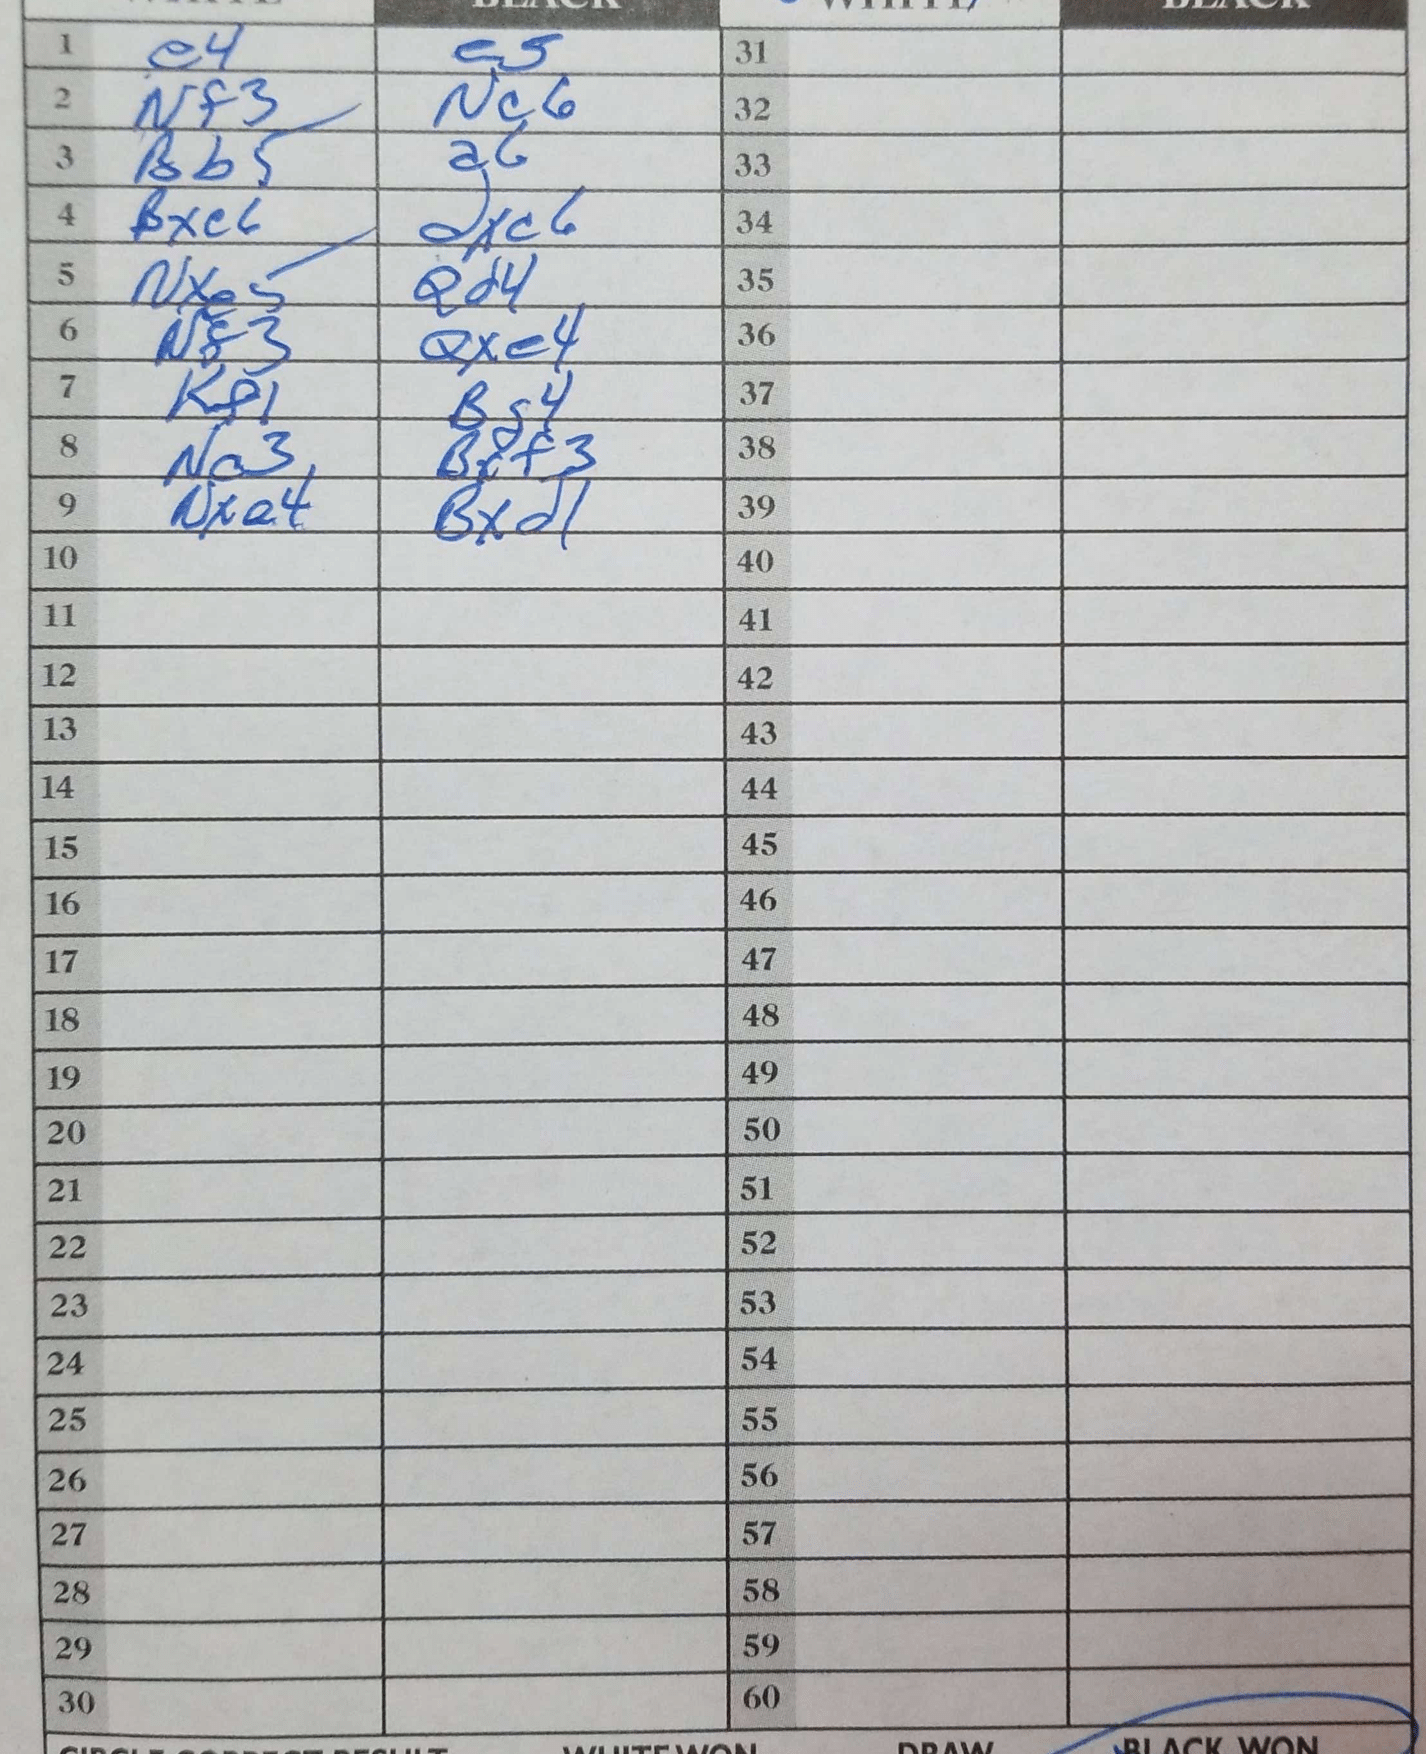 WHITE BLACK WHITE BLACK
1 e4 e5 31
2 Nf3 Nc6 32
3 Bb5 a6 33
4 Bxc6 dxc6 34
5 Nxe5 Qd4 35
6 Nf3 Qxe4 36
7 Kf1 Bg4 37
8 Nc3 Bxf3 38
9 Nxe4 Bxd1 39
10 40
11 41
12 42
13 43
14 44
15 45
16 46
17 47
18 48
19 49
20 50
21 51
22 52
23 53
24 54
25 55
26 56
27 57
28 58
29 59
30 60
CIRCLE CORRECT RESULT WHITE WON DRAW BLACK WON